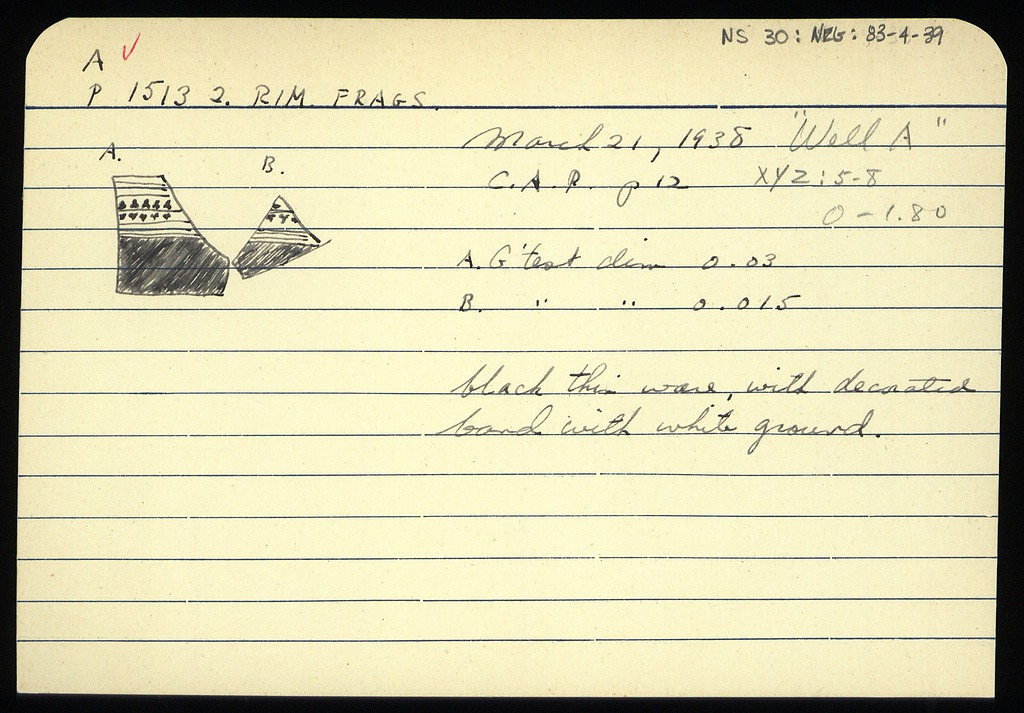 NS 30: NEG: 83-4-39
A ✓
P 1513 2. RIM. FRAGS.
March 21, 1938 "Well A"
A. B.
C.A.P. p 12 XYZ: 5-8
0 - 1.80
A. G'test dim 0.03
B. " " 0.015
black thin ware, with decorated
band with white ground.